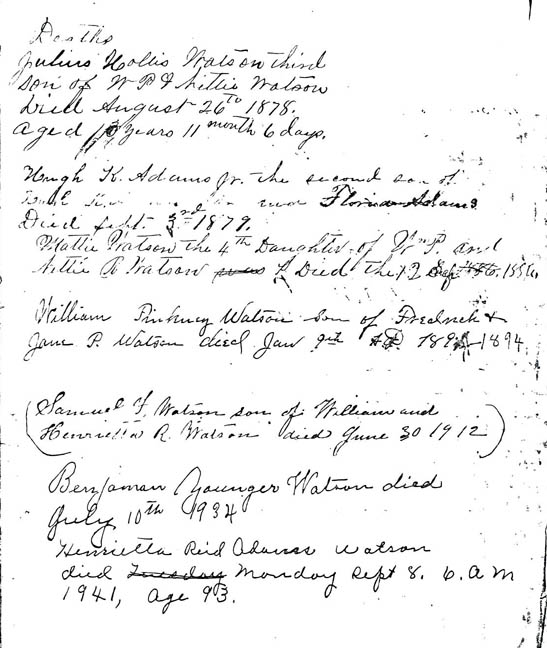 Deaths
Julius Hollis Watson third
son of W P & Nittie Watson
Died August 26th 1878.
aged years 11 month 6 days.
Hugh K. Adams Jr. the second son of
and Florina Adams
Died Sept. 3rd 1879.
Mattie Watson the 4th Daughter of Wm P. and
Nittie R Watson Died the
William Pinkney Watson son of Fredrick &
Jane P. Watson died Jan 9th AD. 1894
(Samuel F. Watson son of William and
Henrietta R. Watson died June 30 1912)
Benjaman Younger Watson died
July 10th 1934
Henrietta Reid Adams Watson
died Tuesday Monday Sept 8. 6. a m
1941, age 93.